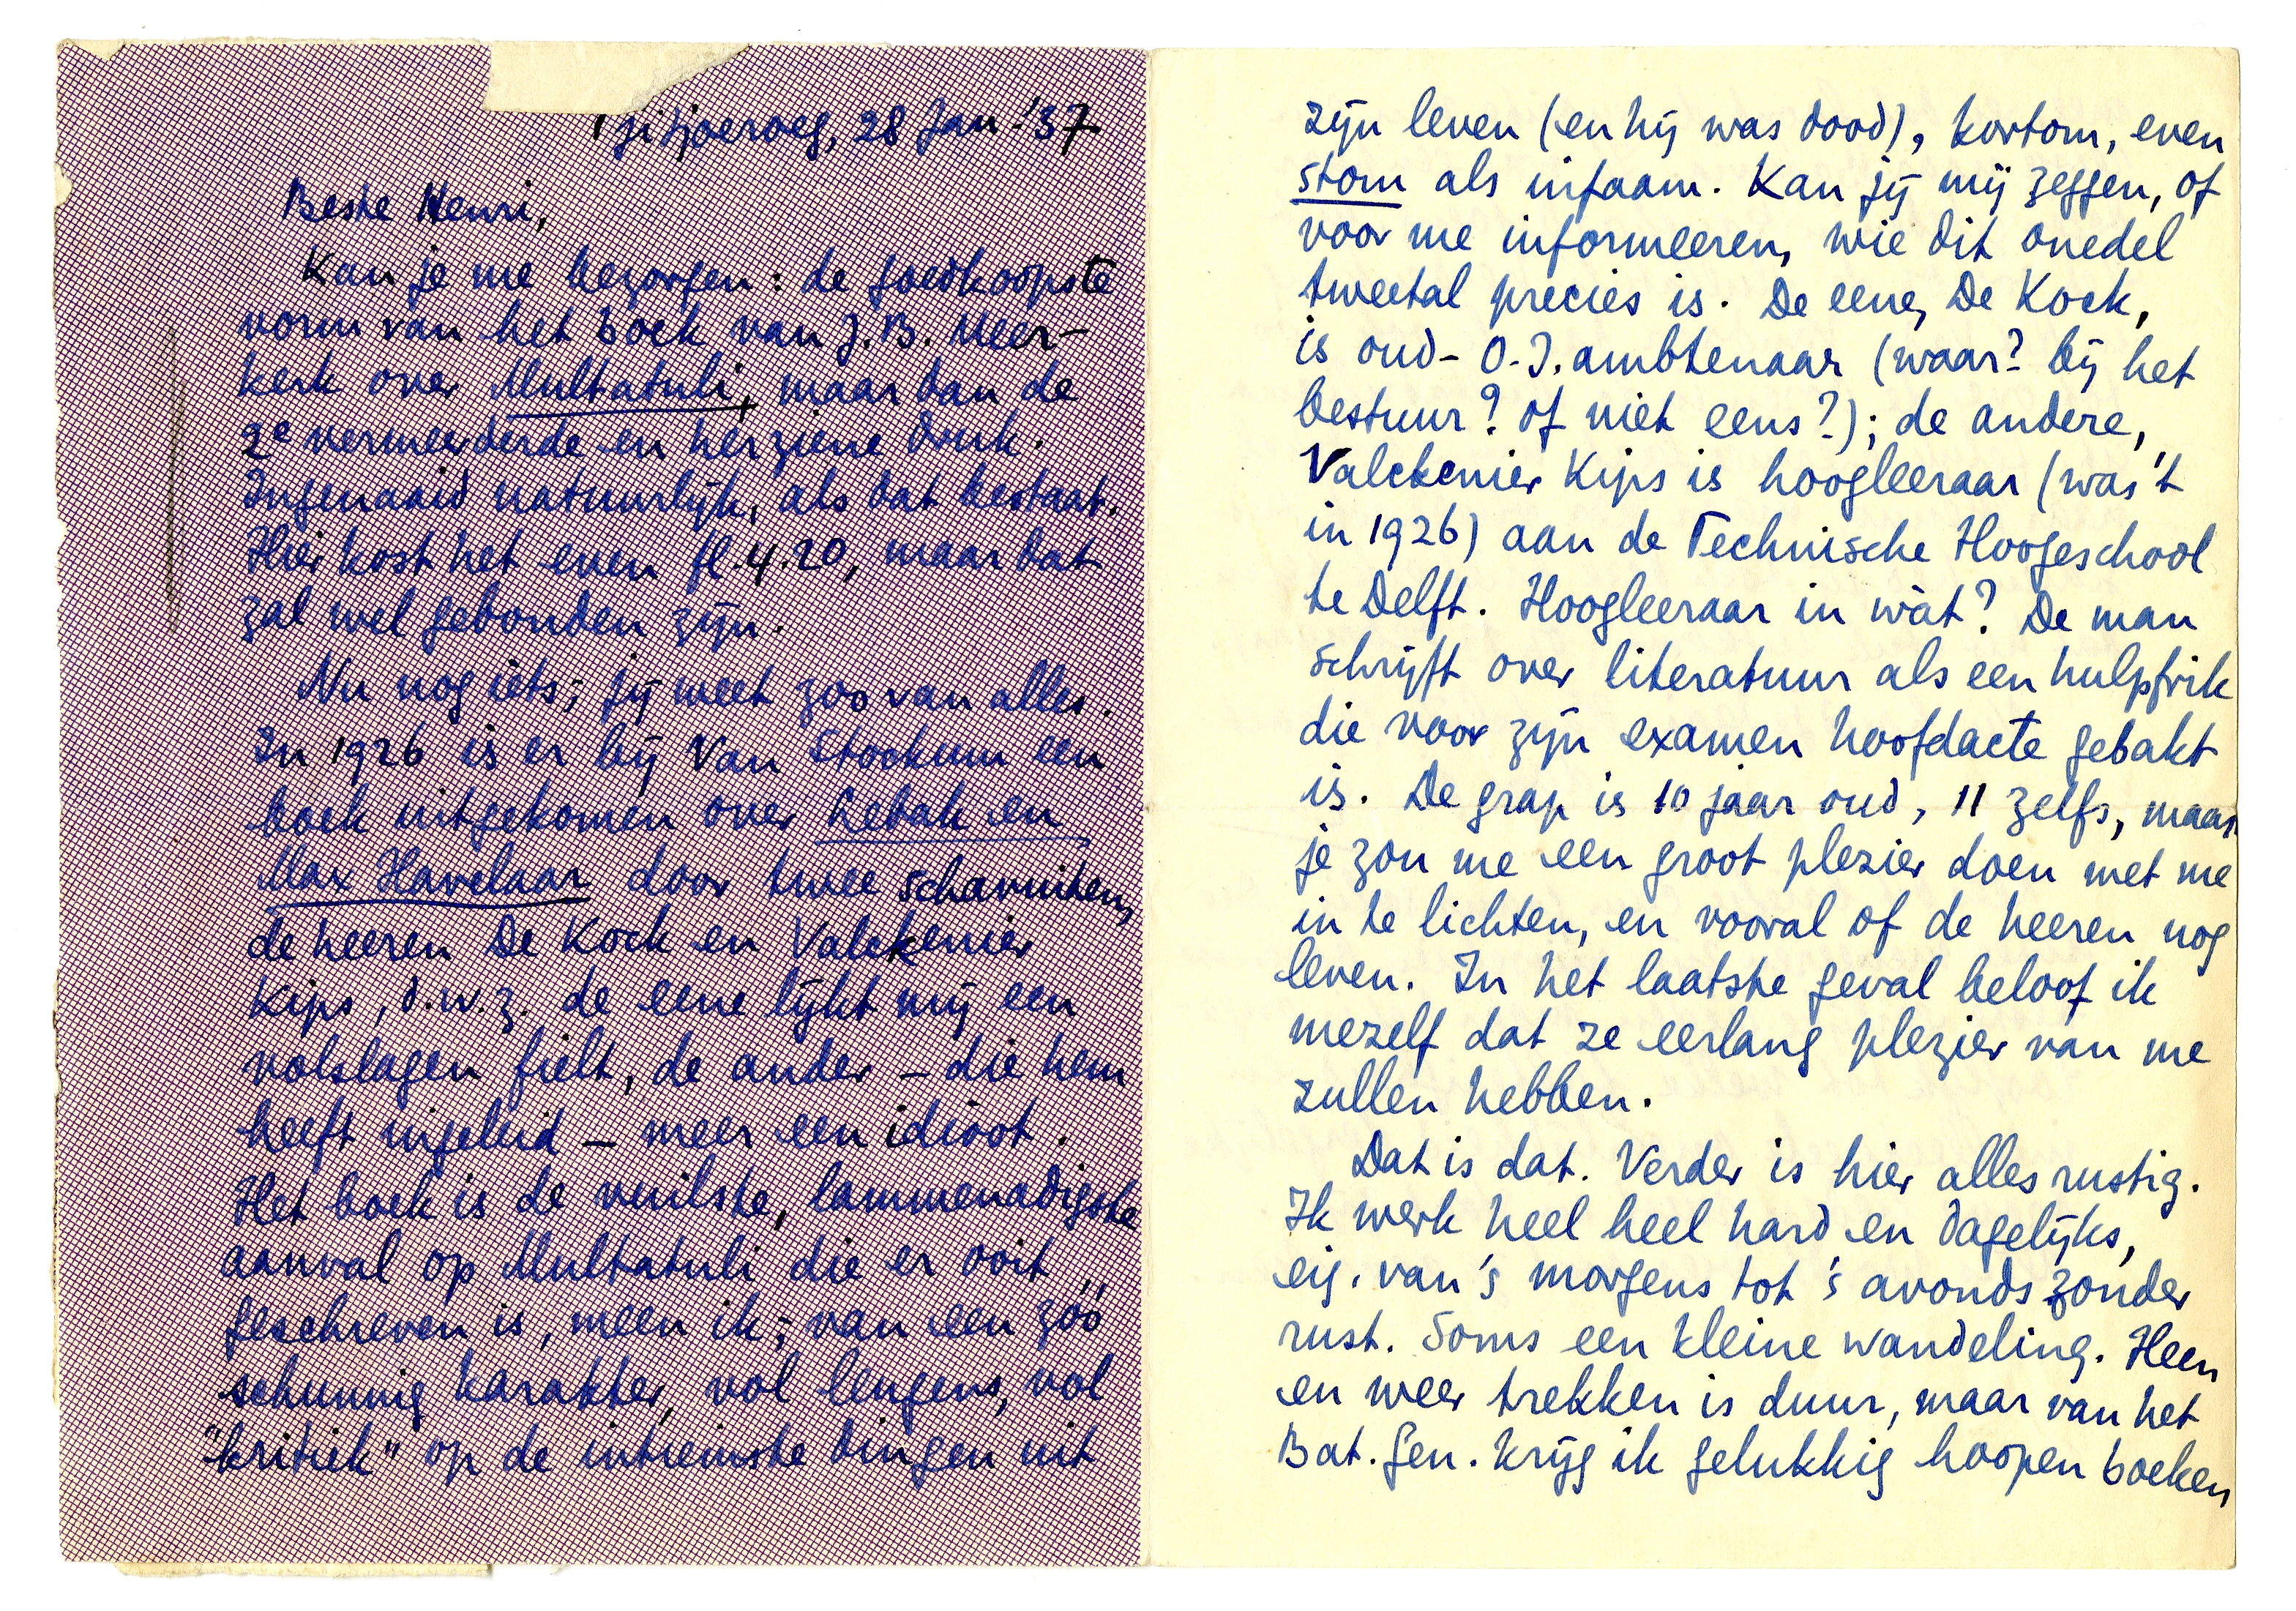 Tjitjoeroeg, 28 Jan. '37
Beste Henri,
Kan je me bezorgen: de goedkoopste
vorm van het boek van J.B. Meer-
kerk over Multatuli, maar dan de
2e vermeerderde en herziene druk.
Ingenaaid natuurlijk, als dat bestaat.
Hier kost het even fl. 4.20, maar dat
zal wel gebonden zijn.
Nu nog iets; jij weet zoo van alles.
In 1926 is er bij Van Stockum een
boek uitgekomen over Lebak en
Max Havelaar door twee schavuiten,
de heeren De Kock en Valckenier
Kips, d.w.z. de eene lijkt mij een
volslagen fielt, de ander – die hem
heeft ingeleid – meer een idioot.
Het boek is de vuilste, lammenadigste
aanval op Multatuli die er ooit
geschreven is, meen ik; van een zóó
schunnig karakter, vol leugens, vol
"kritiek" op de intiemste dingen uit
zijn leven (en hij was dood), kortom, even
stom als infaam. Kan jij mij zeggen, of
voor me informeeren, wie dit onedel
tweetal precies is. De eene, De Kock,
is oud-O.I. ambtenaar (waar? bij het
bestuur? of niet eens?); de andere,
Valckenier Kips is hoogleeraar (was 't
in 1926) aan de Technische Hoogeschool
te Delft. Hoogleeraar in wàt? De man
schrijft over literatuur als een hulpfrik
die voor zijn examen hoofdacte gebakt
is. De grap is 10 jaar oud, 11 zelfs, maar
je zou me een groot plezier doen met me
in te lichten, en vooral of de heeren nog
leven. In het laatste geval beloof ik
mezelf dat ze eerlang plezier van me
zullen hebben.
Dat is dat. Verder is hier alles rustig.
Ik werk heel heel hard en dagelijks,
eig. van 's morgens tot 's avonds zonder
rust. Soms een kleine wandeling. Heen
en weer trekken is duur, maar van het
Bat. Gen. krijg ik gelukkig hoopen boeken